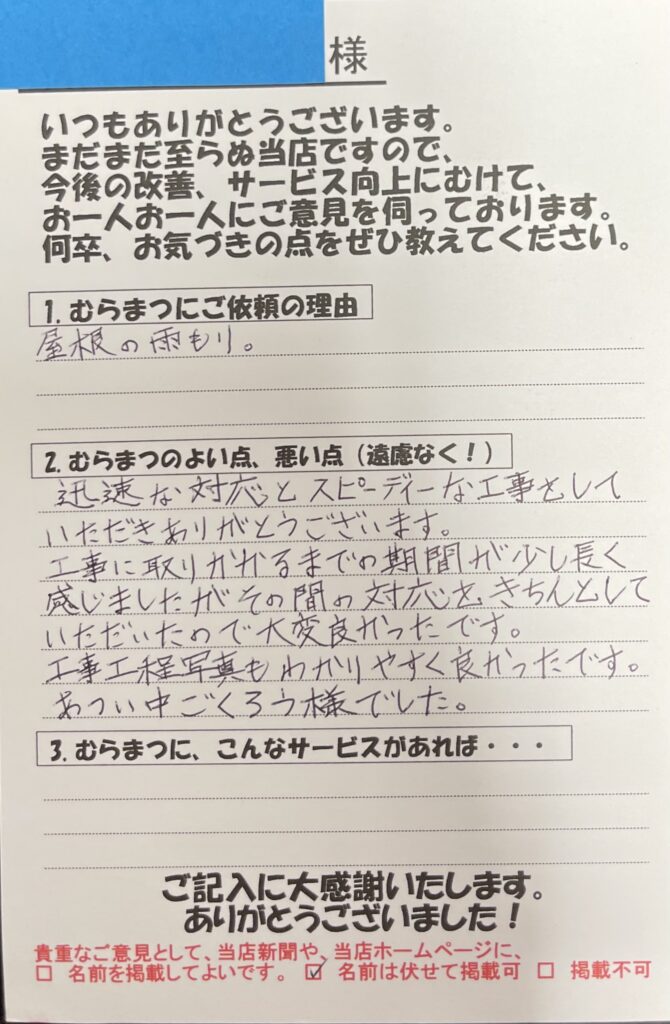 様
いつもありがとうございます。
まだまだ至らぬ当店ですので、
今後の改善、サービス向上にむけて、
お一人お一人にご意見を伺っております。
何卒、お気づきの点をぜひ教えてください。
1. むらまつにご依頼の理由
屋根の雨もり。
2. むらまつのよい点、悪い点（遠慮なく！）
迅速な対応とスピーディーな工事をして
いただきありがとうございます。
工事に取りかかるまでの期間が少し長く
感じましたがその間の対応を、きちんとして
いただいたので大変良かったです。
工事工程写真もわかりやすく良かったです。
あつい中ごくろう様でした。
3. むらまつに、こんなサービスがあれば・・・
ご記入に大感謝いたします。
ありがとうございました！
貴重なご意見として、当店新聞や、当店ホームページに、
□ 名前を掲載してよいです。 ☑ 名前は伏せて掲載可 □ 掲載不可